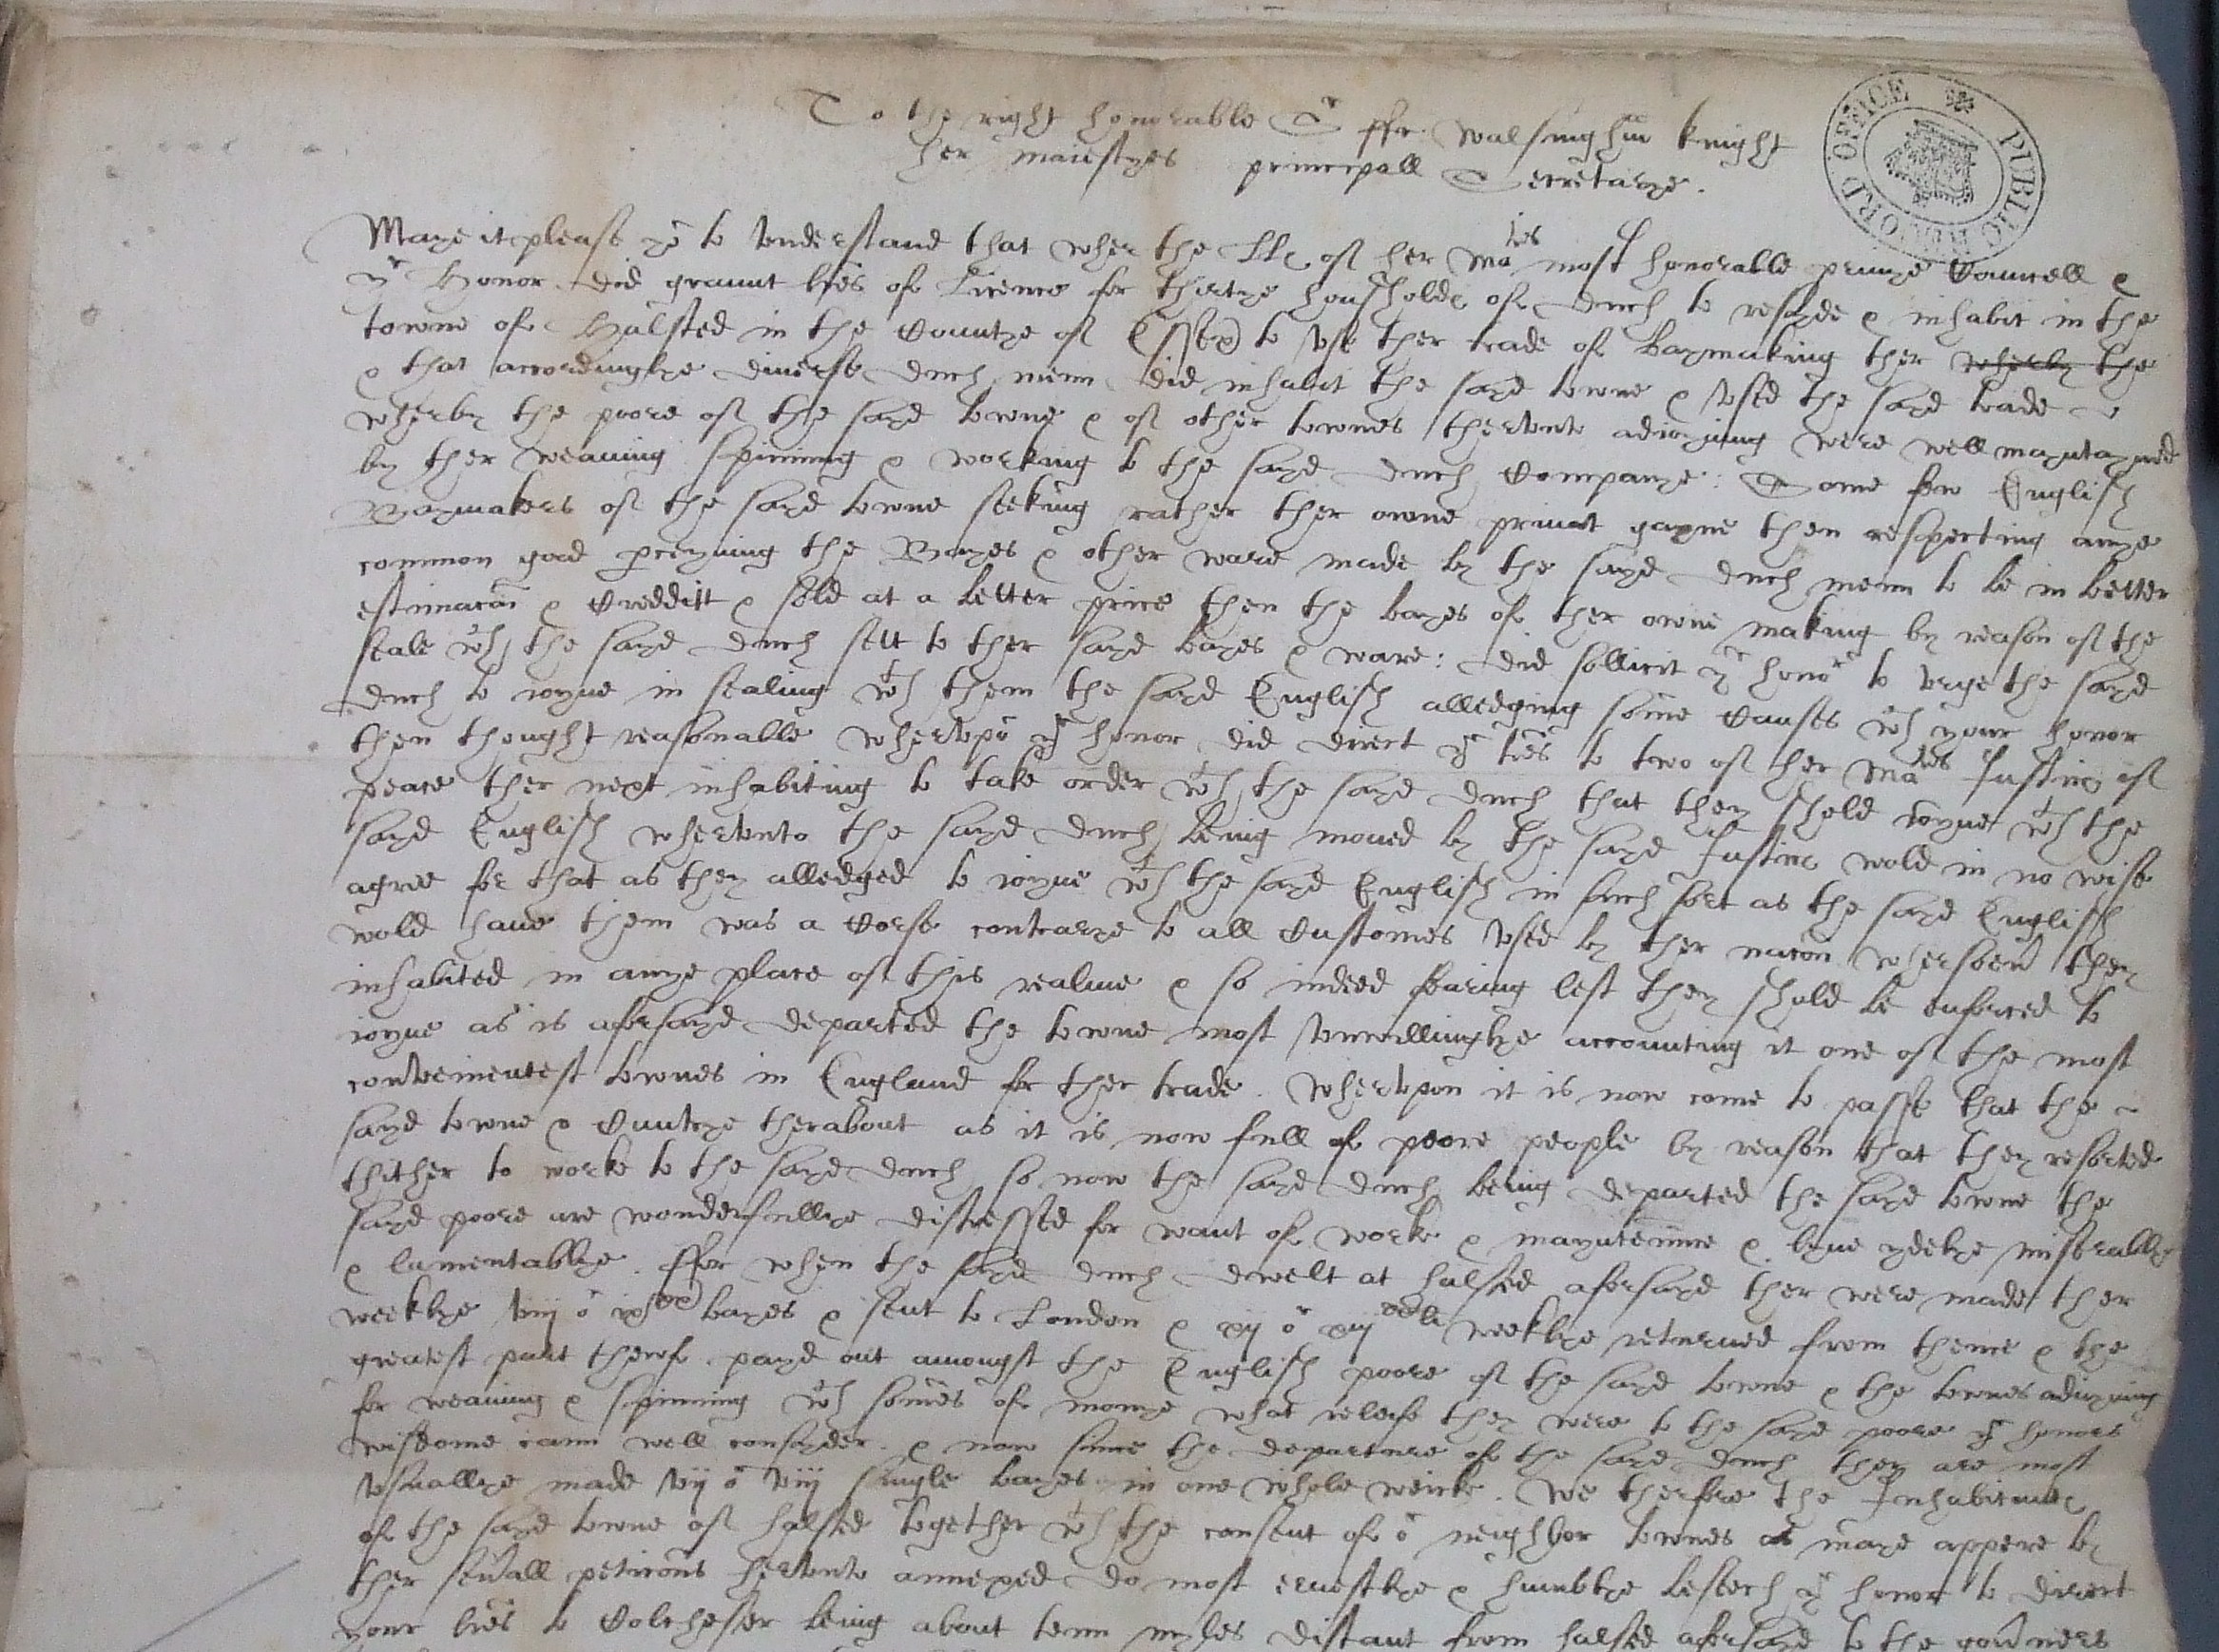 To the right honorable Sr ffr. Walsingham knight
her maiestyes principall Secretarye.
PUBLIC RECORD OFFICE
Maye it please yo to vnderstand that wher the LLs of her Maties most honorable privye Councell &
yr Honor did graunt lres of Licence for thirtye housholds of duch to resyde & inhabit in the
towne of Halsted in the Countye of Essex to vse ther trade of Baymaking ther wherby the
& that accordinglye diverse duch menn did inhabit the sayd towne & vsed the sayd trade
wherby the poore of the sayd towne & of other townes thervnto adioyning were well mayntayned
by ther weaving spinning & working to the sayd duch Companye: Some few English
Baymakers of the sayd towne seeking rather ther owne privat gayne then respecting anye
common good perceyving the Bayes & other ware made by the sayd duch menn to be in better
estimacon & Creddit & sold at a better price then the bayes of ther owne making by reason of the
seale wch the sayd duch sett to ther sayd bayes & ware: did sollicit yr honor to vrge the sayd
duch to ioyne in sealing wth them the sayd English alledging some Causes wch your honor
then thought reasonable whervpo yr honor did direct yr lres to two of her Maties Justics of
peace ther next inhabiting to take order wth the sayd duch that they shold ioyne wth the
sayd English whervnto the sayd duch being moved by the sayd Justics wold in no wise
agree for that as they alledged to ioyne wth the sayd English in such sort as the sayd English
wold have them was a Corse contrarye to all Customes vsed by ther nacon whersoever they
inhabited in anye place of this realme & so indeed fearing lest they shuld be enforced to
ioyne as is aforsayd departed the towne most vnwillinglye accounting it one of the most
conveinientest townes in England for ther trade. Whervpon it is now come to passe that the
sayd towne & Cuntrye therabout as it is now full of poore people by reason that they resorted
thither to worke to the sayd duch so now the sayd duch being departed the sayd towne the
sayd poore are wonderfullye distressed for want of work & mayntenunce & lyve ydelye miserablye
& lamentablye. ffor when the sayd duch dwelt at halsted aforsayd ther were made ther
weeklye viij or ix xx bayes & sent to London & xij or xiij li weeklye returned from thence & the
greatest part therof payd out amongst the English poore of the sayd towne & the townes adioyning
for weaving & spinning wch somes of monye what releife they were to the sayd poore yr honors
wisdome cann well consyder. & now since the departure of the sayd duch they are most
vsuallye made vij or viij single bayes in one whole weeke. We therfore the Inhabitants
of the sayd towne of halsted together wth the consent of or neighbor townes as maye appere by
ther severall peticons hervnto annexed do most ernestlye & humblye beseech yr honor to direct
your lres to Colchester being about tenn myles distant from halsted aforsayd to the governers